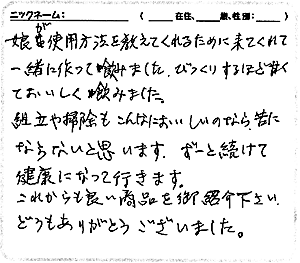 ニックネーム: ( 在住、 歳、性別: )
娘が使用方法を教えてくれるために来てくれて
一緒に作って飲みました。びっくりするほど甘く
ておいしく飲みました。
組立や掃除もこんなにおいしいのなら、苦に
ならないと思います。ずーと続けて
健康になって行きます。
これからも良い商品を御紹介下さい
どうもありがとうございました。